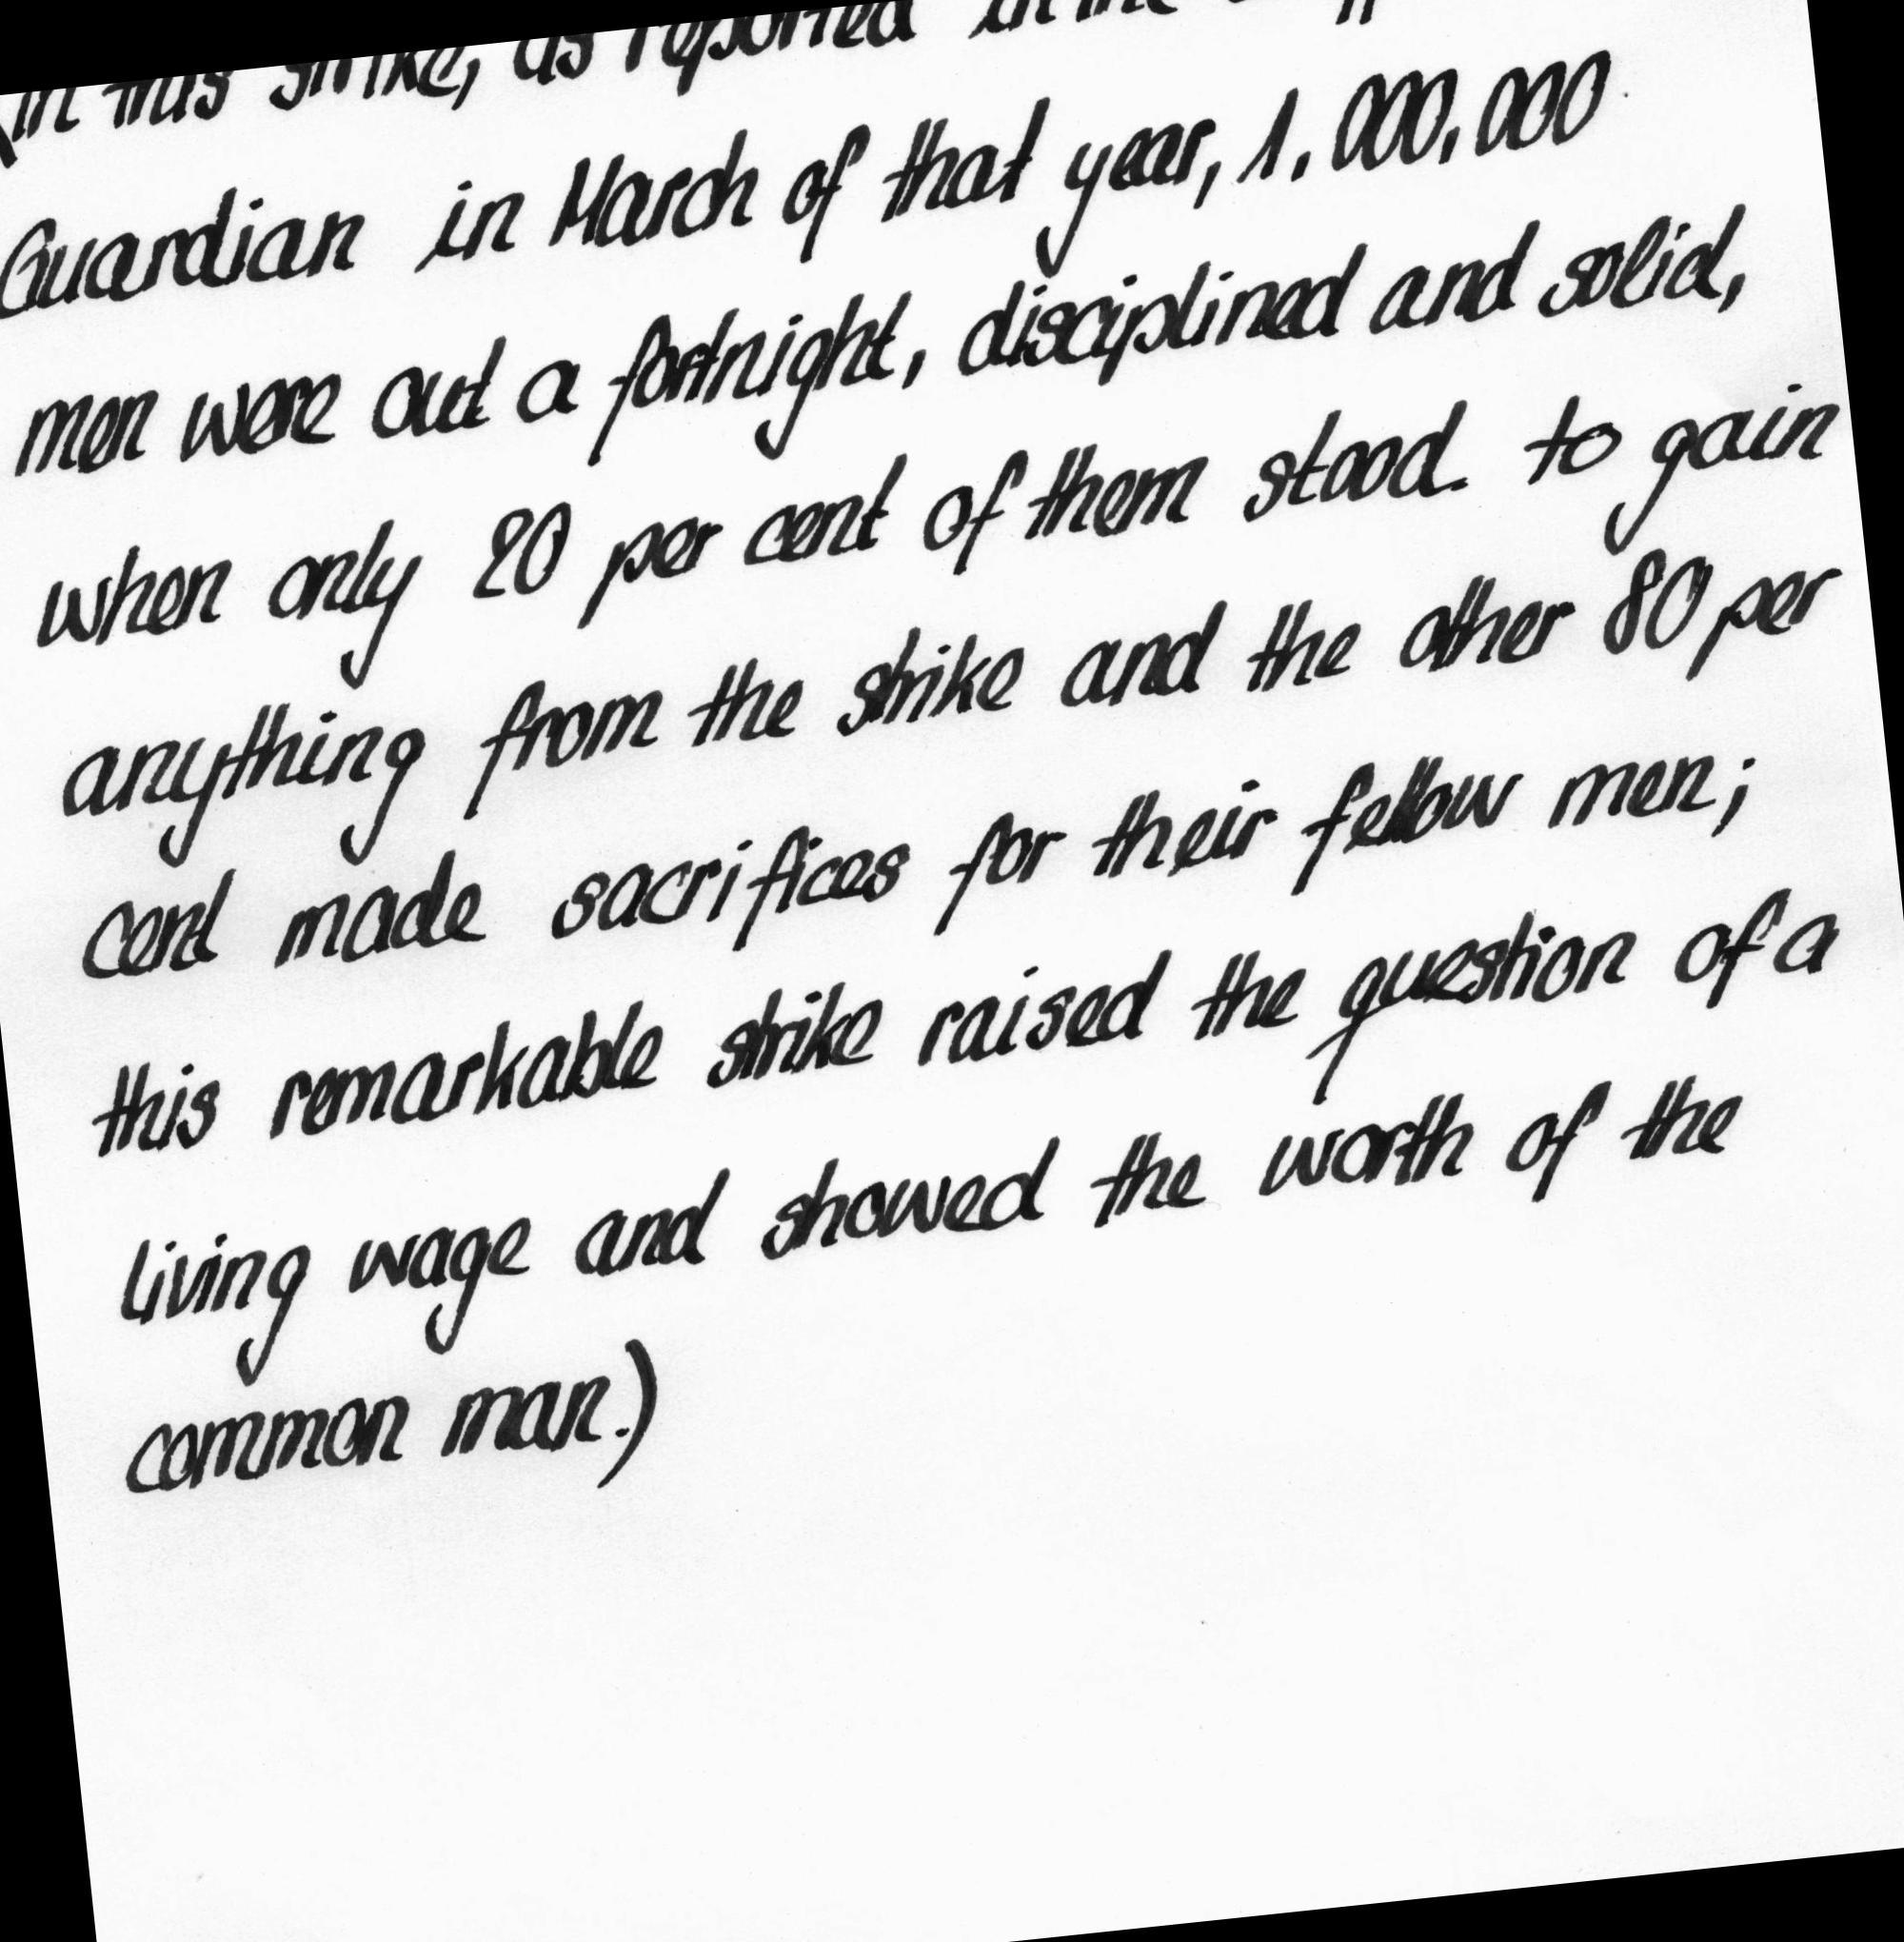 (in this strike, as reported in the
Guardian in March of that year, 1,000,000
men were out a fortnight, disciplined and solid,
when only 20 per cent of them stood. to gain
anything from the strike and the other 80 per
cent made sacrifices for their fellow men;
this remarkable strike raised the question of a
living wage and showed the worth of the
common man.)